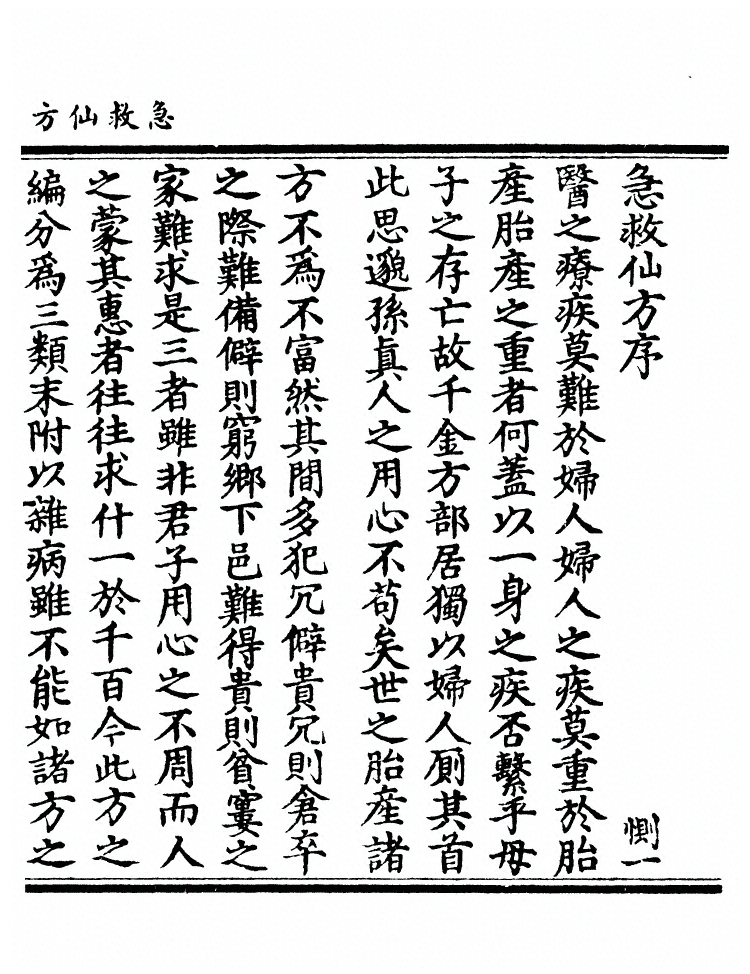 急救仙方
急救仙方序
惻一
醫之療疾莫難於婦人婦人之疾莫重於胎
產胎產之重者何蓋以一身之疾否繫乎母
子之存亡故千金方部居獨以婦人厠其首
此思邈孫眞人之用心不苟矣世之胎產諸
方不為不富然其間多犯冗僻貴冗則倉卒
之際難備僻則窮鄉下邑難得貴則貧窶之
家難求是三者雖非君子用心之不周而人
之蒙其惠者往往求什一於千百今此方之
編分為三類末附以雜病雖不能如諸方之